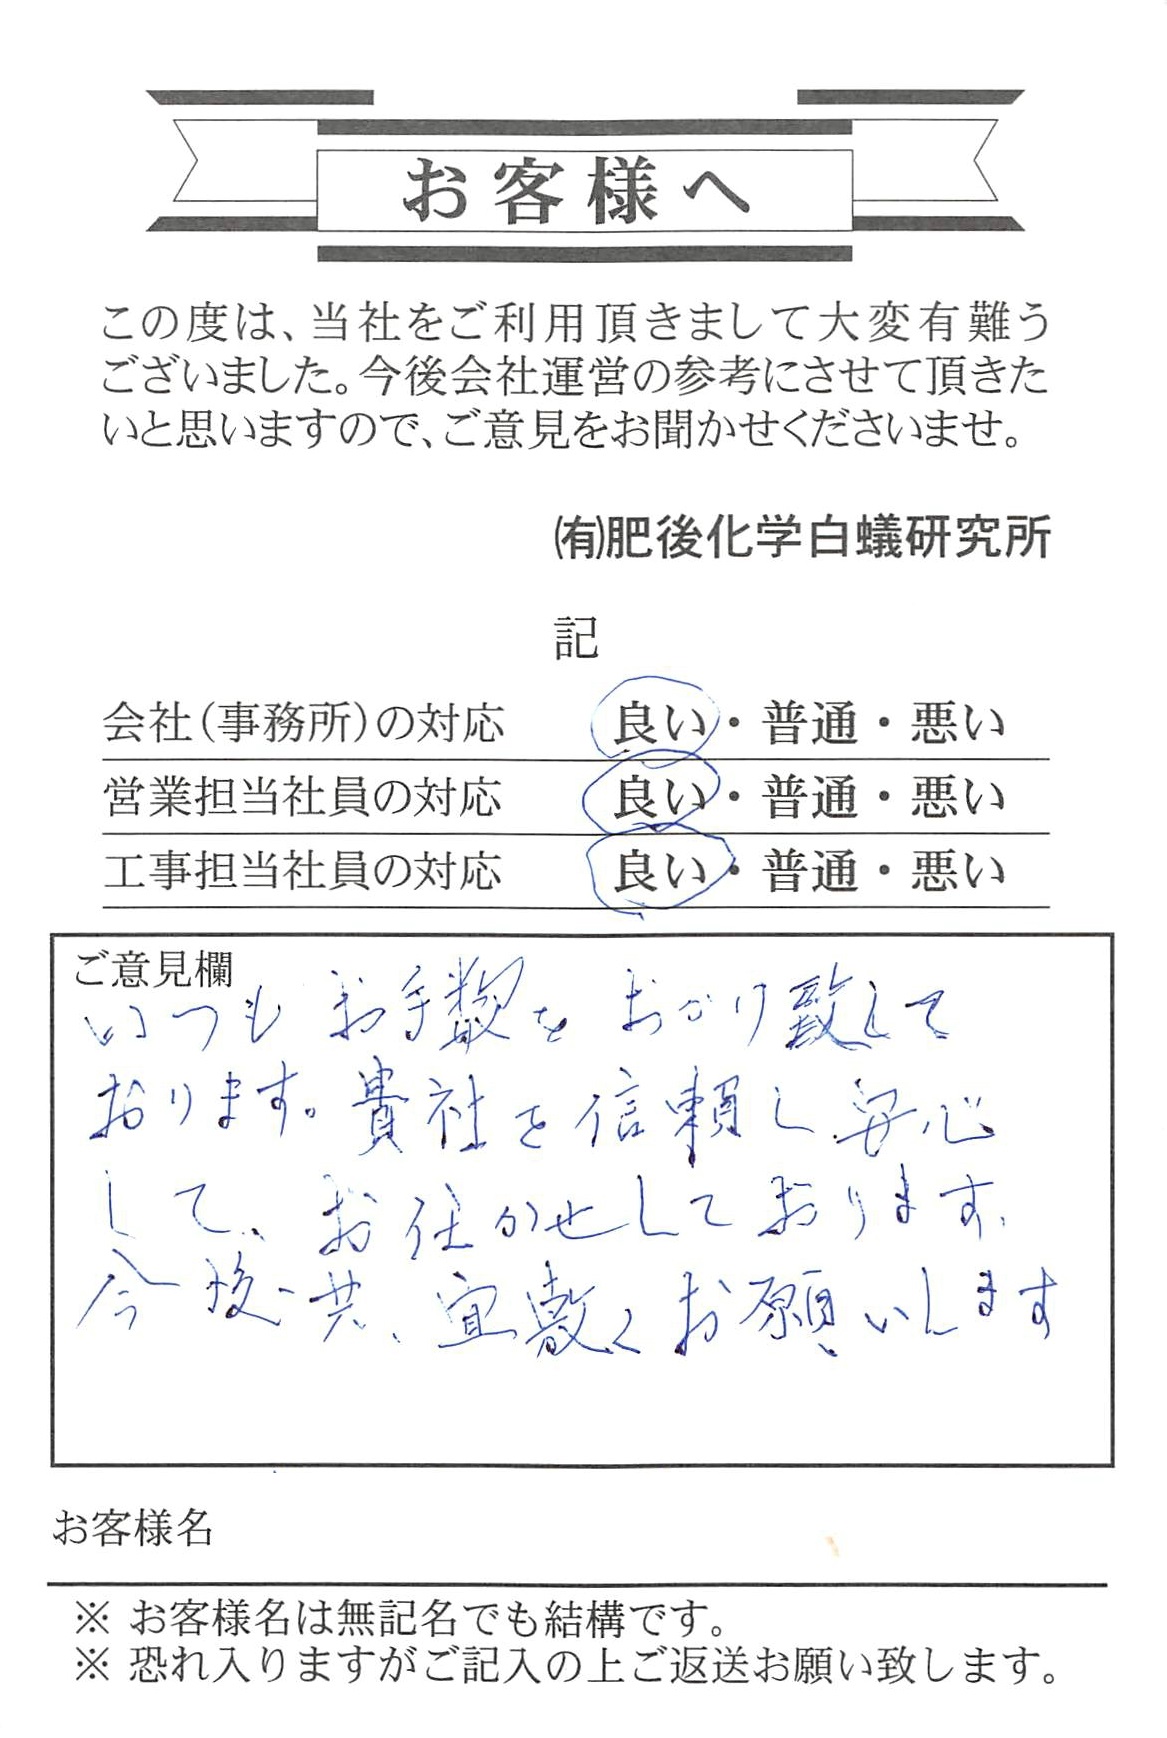 お客様へ
この度は、当社をご利用頂きまして大変有難う
ございました。今後会社運営の参考にさせて頂きた
いと思いますので、ご意見をお聞かせくださいませ。
㈲肥後化学白蟻研究所
記
会社(事務所)の対応 良い・普通・悪い
営業担当社員の対応 良い・普通・悪い
工事担当社員の対応 良い・普通・悪い
ご意見欄
いつもお手数をおかけ致して
おります。貴社を信頼し安心
して、お任かせしております、
今後共、宜敷くお願いします
お客様名
※ お客様名は無記名でも結構です。
※ 恐れ入りますがご記入の上ご返送お願い致します。